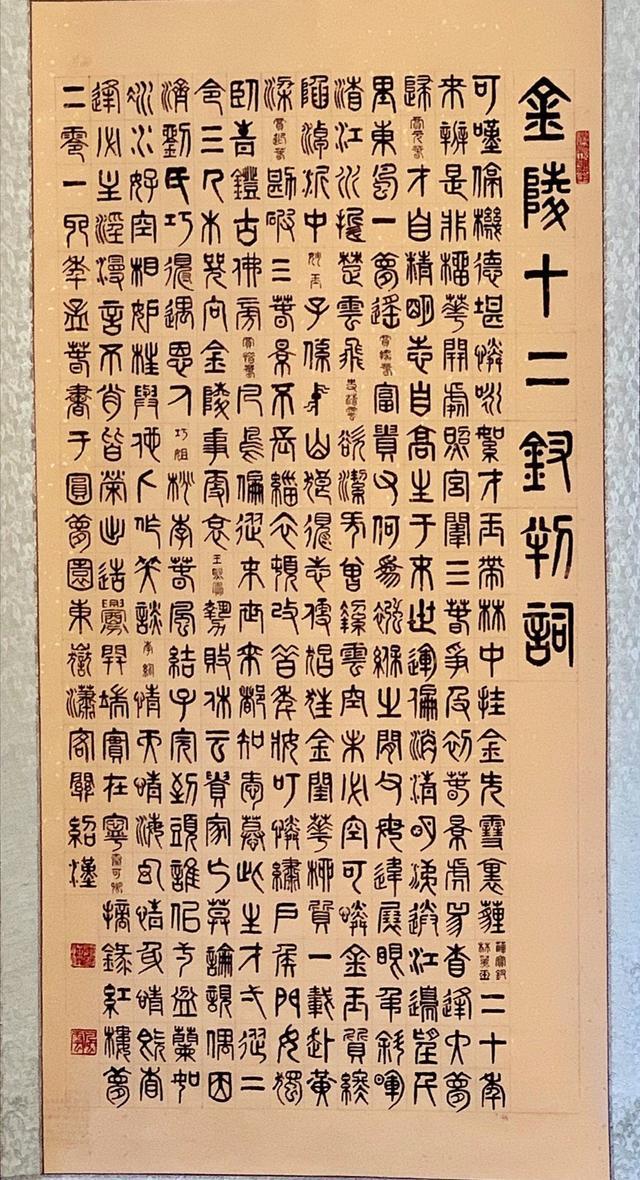 金陵十二釵判詞
可嘆停機德堪憐咏絮才玉帶林中挂金先雪裏薶薛寶釵林黛玉二十年
來辨是非榴花開處照宮闈三春爭及初春景虎兕相逢大夢
歸賈元春才自精明志自高生于末世運偏消清明涕送江邊望千
里東風一夢遙賈探春富貴又何爲襁緥之間父母違展眼弔斜暉
湘江水逝楚雲飛史湘雲欲潔何曾潔雲空未必空可憐金玉質終
陷淖泥中妙玉子係中山狼得志便猖狂金閨花柳質一載赴黃
粱賈迎春勘破三春景不長緇衣頓改昔年妝可憐繡戶侯門女獨
臥青燈古佛旁賈惜春凡鳥偏從末世來都知愛慕此生才一從二
令三人木哭向金陵事更哀王熙鳳勢敗休云貴家亡莫論親偶因
濟劉氏巧得遇恩人巧姐桃李春風結子完到頭誰似一盆蘭如
冰水好空相妒枉與他人作笑談李紈情天情海幻情身情既相
逢必主淫漫言不肖皆榮出造釁開端實在寧秦可卿摘錄紅樓夢
二零一九年孟春書于圓夢園東嶽瀟客